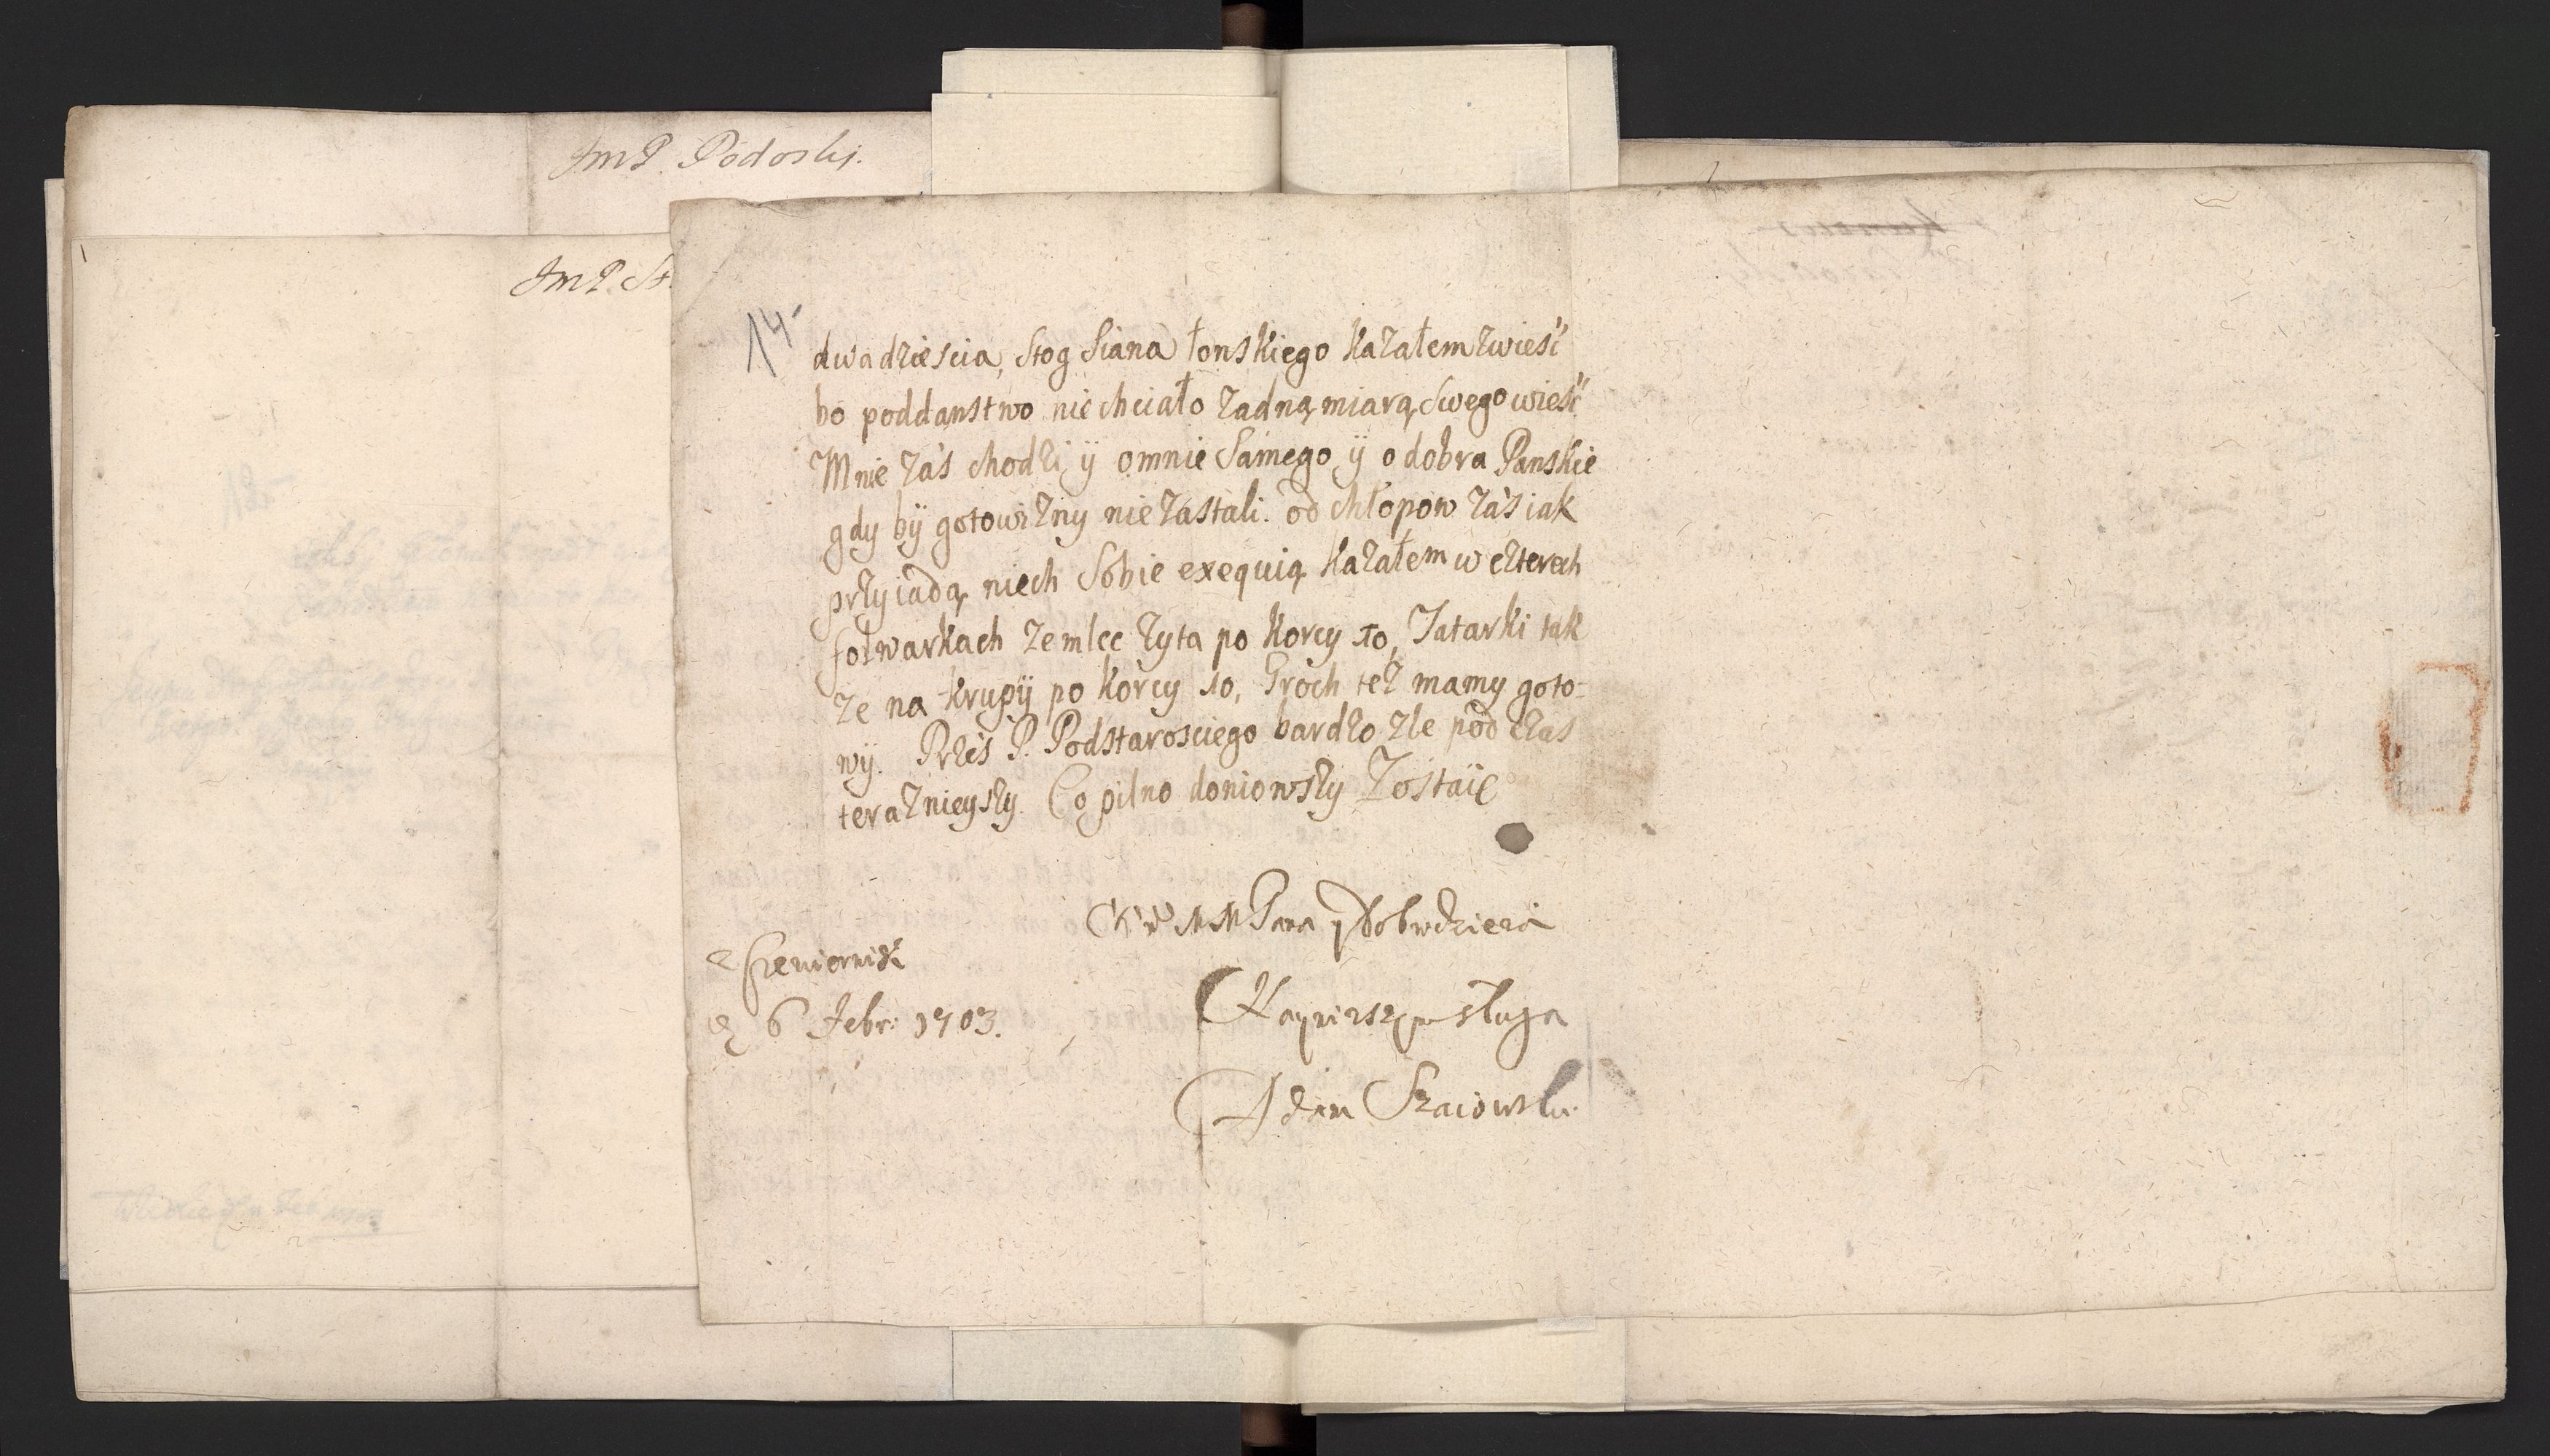 JmP. Podoski.
JmP. St.
14
dwadziescia, Stog Siana łonskiego kazałem zwieść
bo poddanstwo niechciało żadną miarą Swego wieść
Mnie zaś chodzi ÿ omnie Samego ÿ o dobra Panskie
gdy bÿ gotowizny nie zastali. od chłopow zaś iak
przyiadą niech Sobie exequią kazałem w czterech
folwarkach zemlec żyta po korcy 10, Tatarki tak
że na krupÿ po korcy 10, Groch też mamy goto-
wÿ. Prżes P. Podstarosciego bardzo źle pod czas
teraznieyszy. Co pilno doniowszy Zostaię
MM Pana y Dobrodzieia
6 Febr: 1703.
sługa
Adam